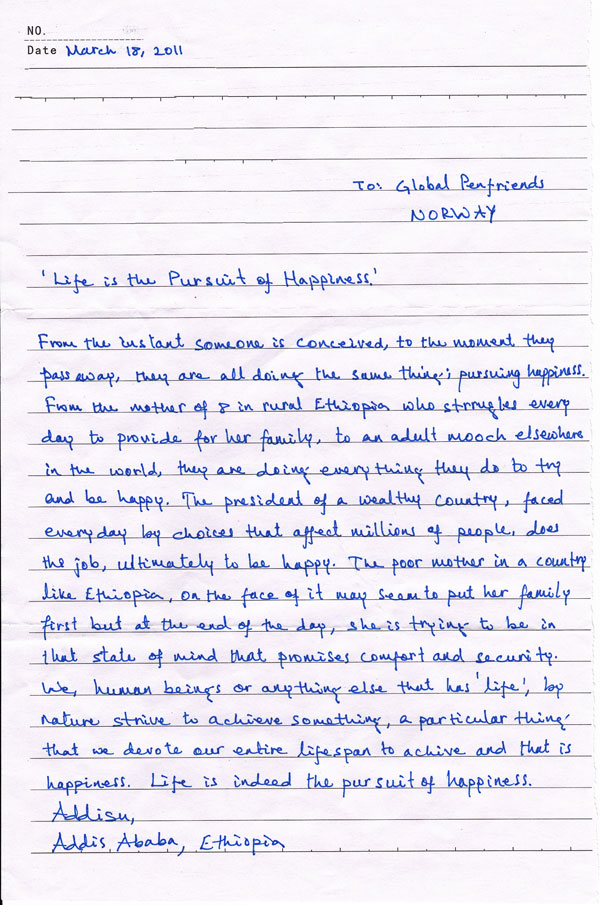 NO.
Date March 18, 2011
To: Global Penfriends
NORWAY
'Life is the Pursuit of Happiness.'
From the instant someone is conceived, to the moment they
pass away, they are all doing the same thing; pursuing happiness.
From the mother of 8 in rural Ethiopia who struggles every
day to provide for her family, to an adult mooch elsewhere
in the world, they are doing everything they do to try
and be happy. The president of a wealthy country, faced
everyday by choices that affect millions of people, does
the job, ultimately to be happy. The poor mother in a country
like Ethiopia, on the face of it may seem to put her family
first but at the end of the day, she is trying to be in
that state of mind that promises comfort and security.
We, human beings or anything else that has 'life', by
nature strive to achieve something, a particular thing
that we devote our entire lifespan to achive and that is
happiness. Life is indeed the pursuit of happiness.
Addisu,
Addis Ababa, Ethiopia